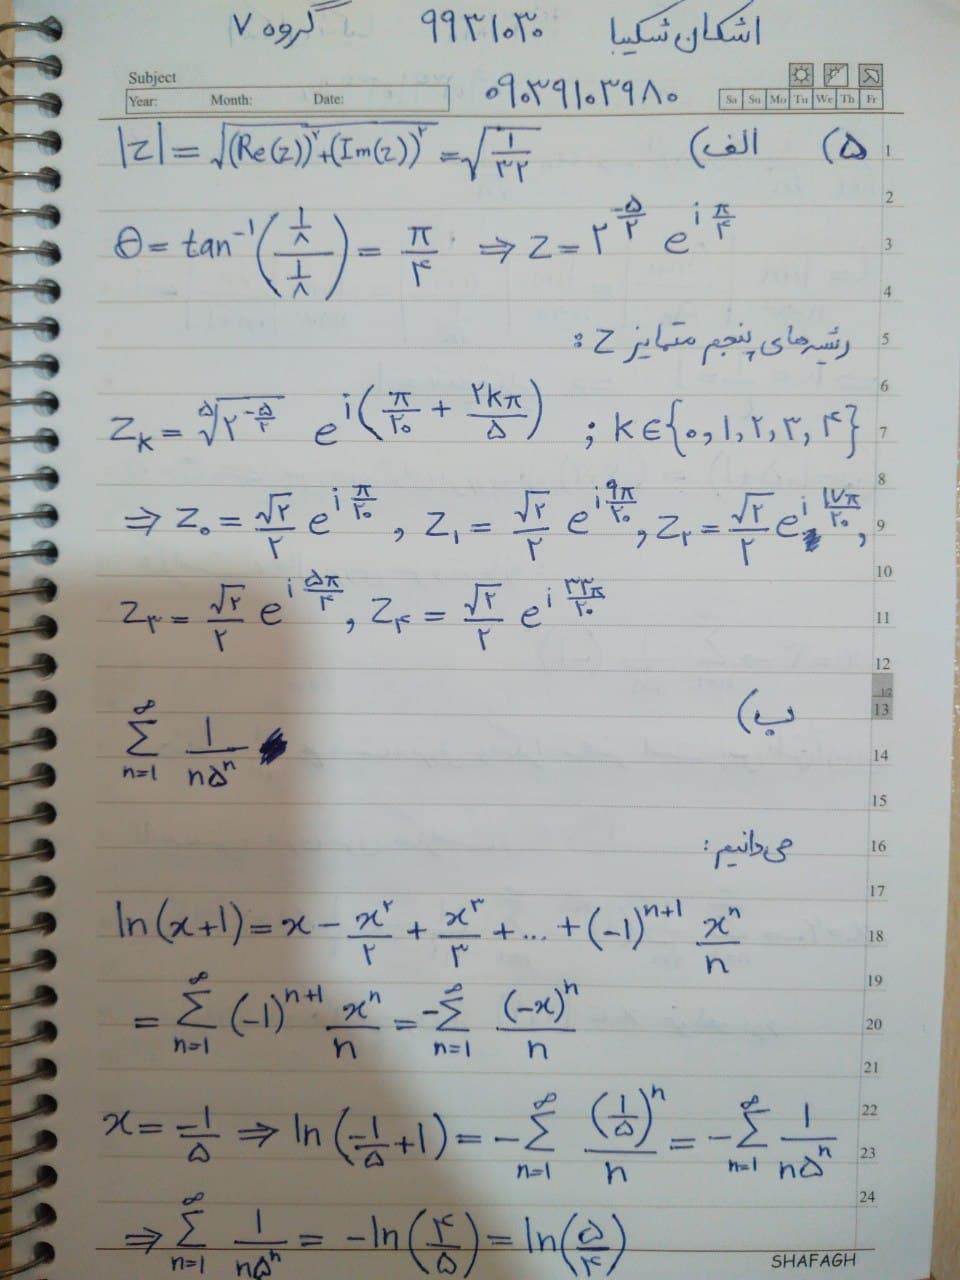 اشکان شکیبا ۹۹۳۱۰۳۰ گروه ۷
Subject
۰۹۰۳۹۱۰۳۹۸۰
Year: Month: Date:
Sa Su Mo Tu We Th Fr
۵) الف) |z| = √((Re(z))^۲ + (Im(z))^۲) = √(۱/۳۲)
θ = tan^-۱((۱/۸)/(۱/۸)) = π/۴ ⇒ z = ۲^(-۵/۲) e^(i π/۴)
ریشه‌های پنجم متمایز z:
z_k = ⁵√(۲^(-۵/۲)) e^(i(π/۲۰ + ۲kπ/۵)) ; k∈{۰, ۱, ۲, ۳, ۴}
⇒ z_۰ = √۲/۲ e^(i π/۲۰) , z_۱ = √۲/۲ e^(i ۹π/۲۰) , z_۲ = √۲/۲ e^(i ۱۷π/۲۰) ,
z_۳ = √۲/۲ e^(i ۵π/۴) , z_۴ = √۲/۲ e^(i ۳۳π/۲۰)
ب)
∑_{n=۱}^∞ ۱/(n۵^n)
می‌دانیم:
ln(x+۱) = x - x^۲/۲ + x^۳/۳ + ... + (-۱)^(n+۱) x^n/n
= ∑_{n=۱}^∞ (-۱)^(n+۱) x^n/n = -∑_{n=۱}^∞ (-x)^n/n
x = -۱/۵ ⇒ ln(-۱/۵ + ۱) = -∑_{n=۱}^∞ (۱/۵)^n/n = -∑_{n=۱}^∞ ۱/(n۵^n)
⇒ ∑_{n=۱}^∞ ۱/(n۵^n) = -ln(۴/۵) = ln(۵/۴)
SHAFAGH
1
2
3
4
5
6
7
8
9
10
11
12
13
14
15
16
17
18
19
20
21
22
23
24